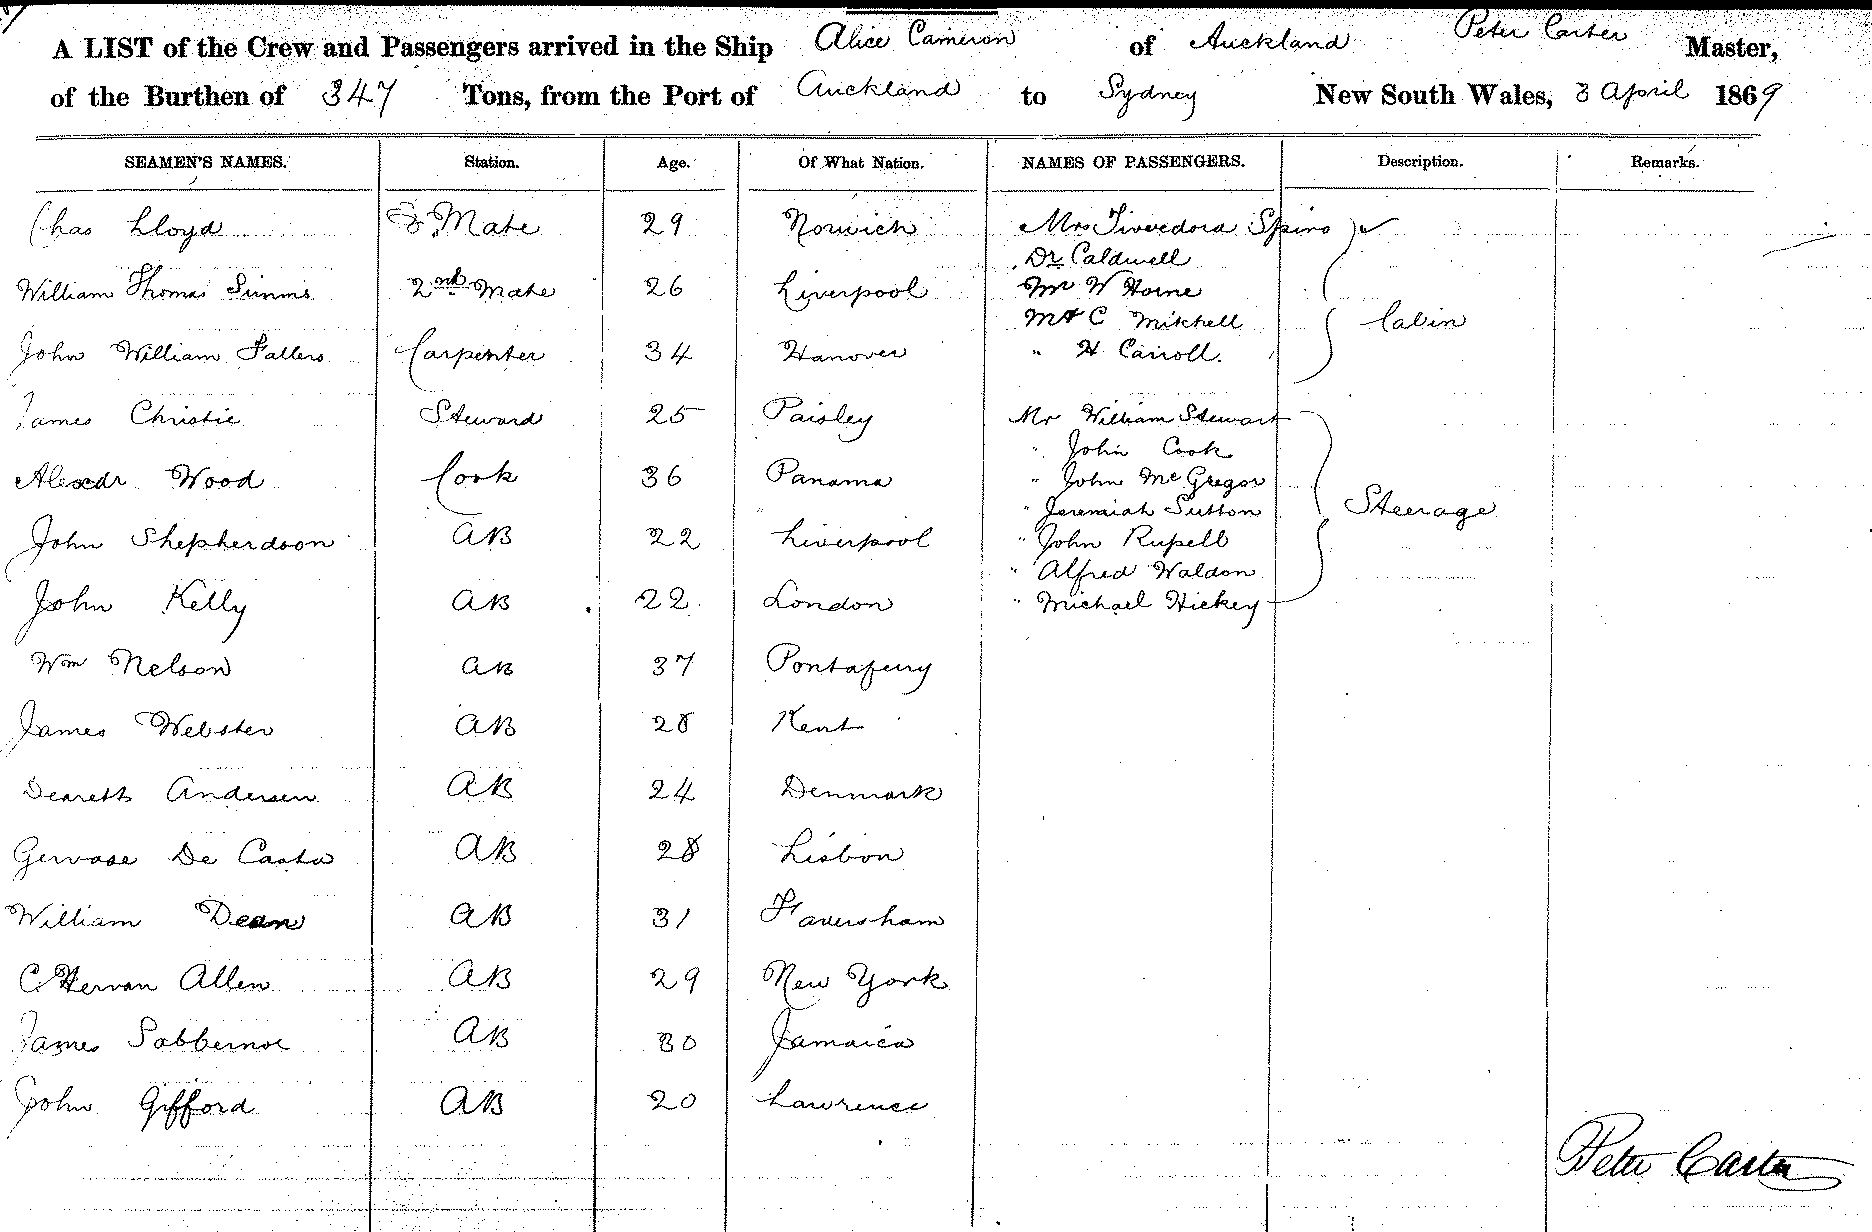 A LIST of the Crew and Passengers arrived in the Ship Alice Cameron of Auckland Peter Carter Master,
of the Burthen of 347 Tons, from the Port of Auckland to Sydney New South Wales, 3 April 1869
SEAMEN'S NAMES. Station. Age. Of What Nation. NAMES OF PASSENGERS. Description. Remarks.
Chas Lloyd Mate 29 Norwich Mrs Spiro
Dr Caldwell
William Thomas Simms 2nd Mate 26 Liverpool Mr W Horne
Mr C Mitchell Cabin
John William Carpenter 34 Hanover " H Carroll.
James Christie Steward 25 Paisley Mr William Stewart
" John Cook
Alexdr Wood Cook 36 Panama " John McGregor
" Jeremiah Sutton Steerage
John Shepherdson AB 22 Liverpool " John
" Alfred Waldon
John Kelly AB 22 London " Michael Hickey
Wm Nelson AB 37 Portaferry
James Webster AB 28 Kent
Andersen AB 24 Denmark
Gervase De AB 28 Lisbon
William Dean AB 31 Faversham
C Hervan Allen AB 29 New York
James AB 30 Jamaica
John Gifford AB 20 Lawrence
Peter Carter